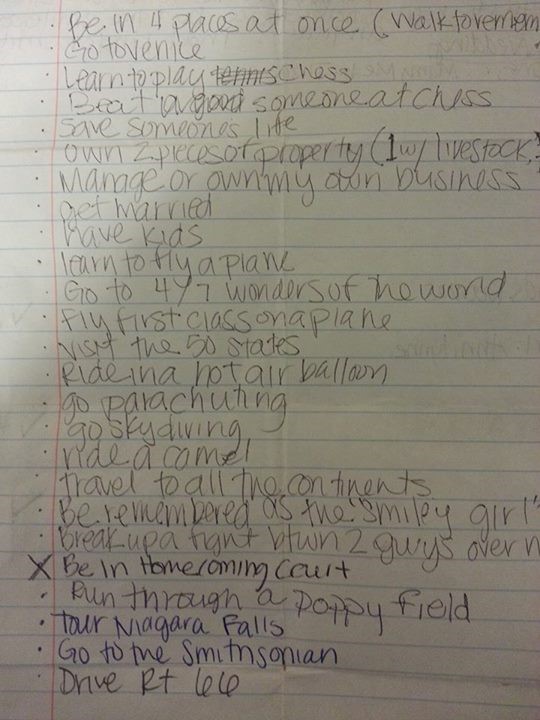 · Be in 4 places at once (Walktoremem
· Go to Venice
· Learn to play tennis chess
· Beat someone at chess
· Save someones life
· Own 2 pieces of property (1 w/ livestock,
· Manage or own my own business
· get married
· have kids
· learn to fly a plane
· Go to 4/7 wonders of the world
· fly first class on a plane
· visit the 50 states
· Ride in a hot air balloon
· go parachuting
· go skydiving
· ride a camel
· travel to all the continents
· Be remembered as the "smiley girl"
· Break up a fight btwn 2 guys over m
X Be in Homecoming Court
· Run through a poppy field
· tour Niagara Falls
· Go to the Smithsonian
· Drive Rt 66